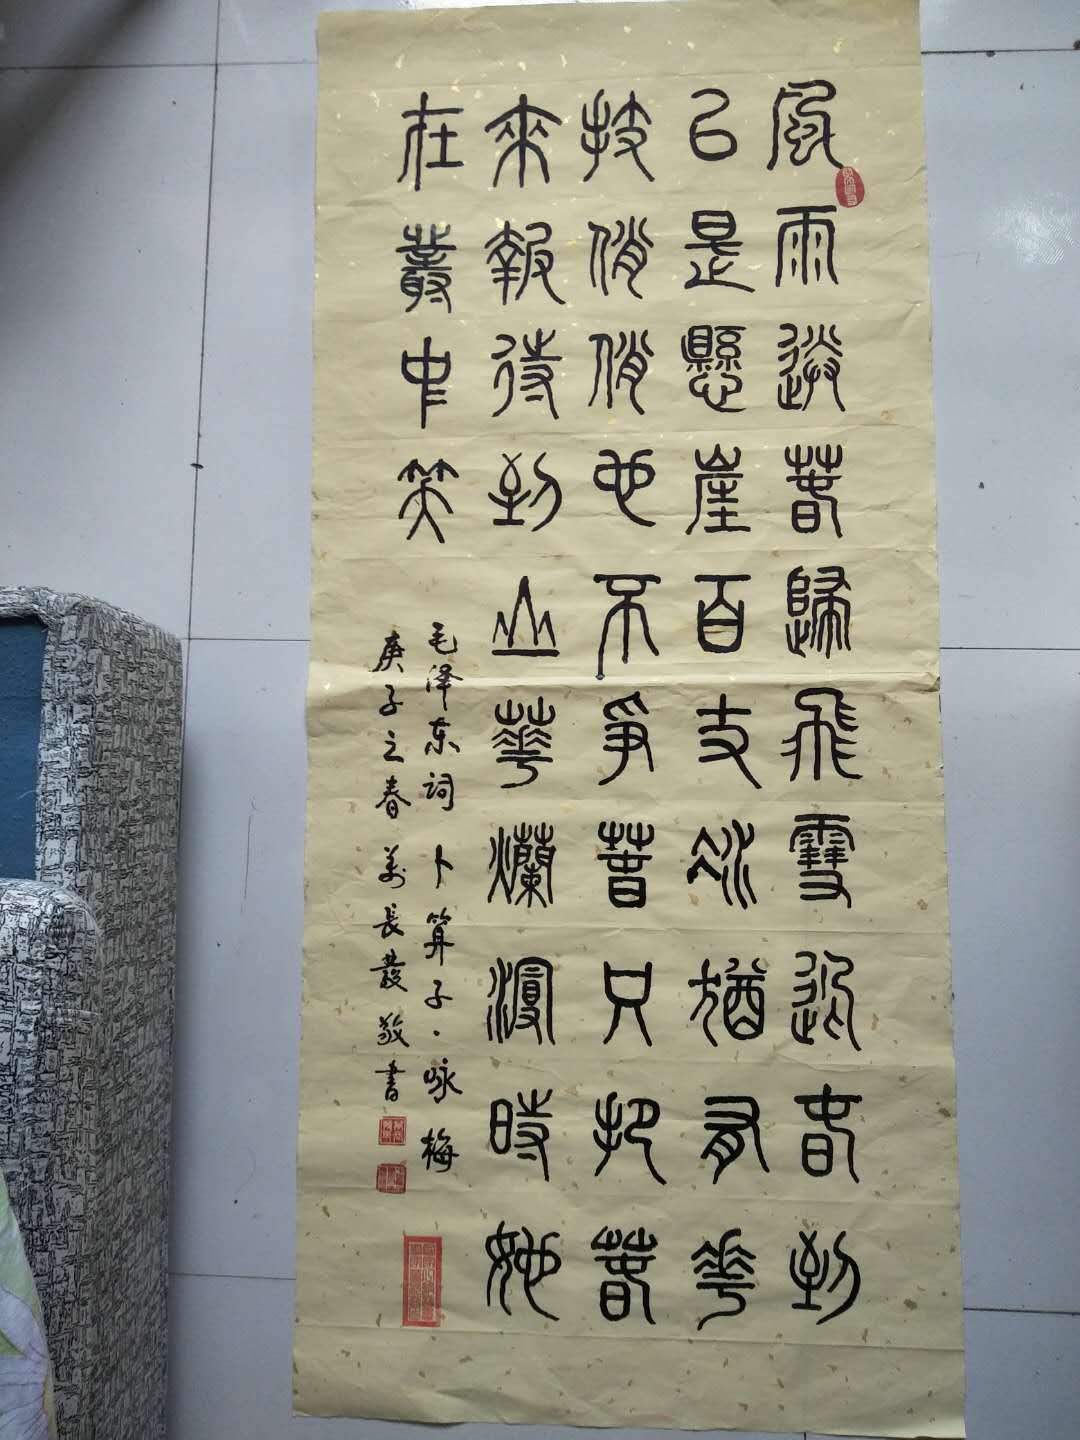 風雨送春歸飛雪迎春到
已是懸崖百丈冰猶有華
枝俏俏也不爭春只把春
來報待到山華爛漫時她
在叢中笑
毛泽东词 卜算子·咏梅
庚子之春 長發敬書